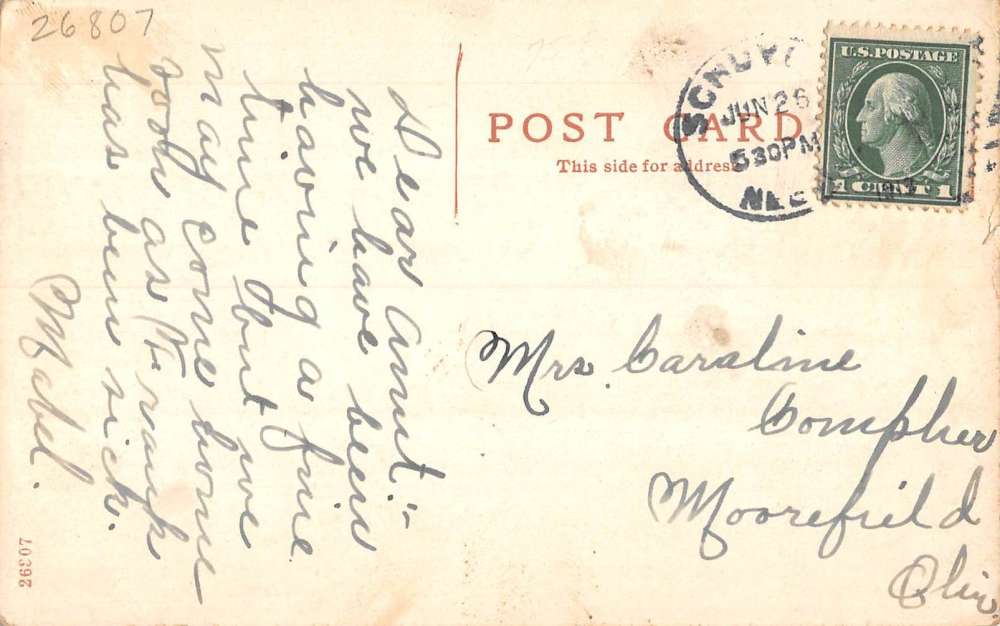 26807
POST CARD
This side for address
SCHUY
JUN 26
530PM
NEB
U.S.POSTAGE
1 CENT 1
Dear Aunt:-
we have been
having a fine
time but we
may come home
soon as Frank
has been sick.
Mabel.
Mrs. Caraline
Compher
Moorefield
Ohio
26807